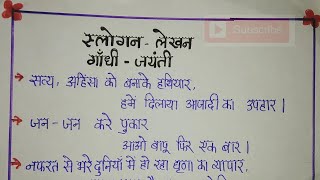 Subscribe
स्लोगन - लेखन
गाँधी - जयंती
→ सत्य, अहिंसा को बनाके हथियार,
हमें दिलाया आजादी का उपहार।
→ जन - जन करे पुकार
आओ बापू फिर एक बार।
→ नफरत से भरे दुनियाँ में हो रहा घृणा का व्यापार,